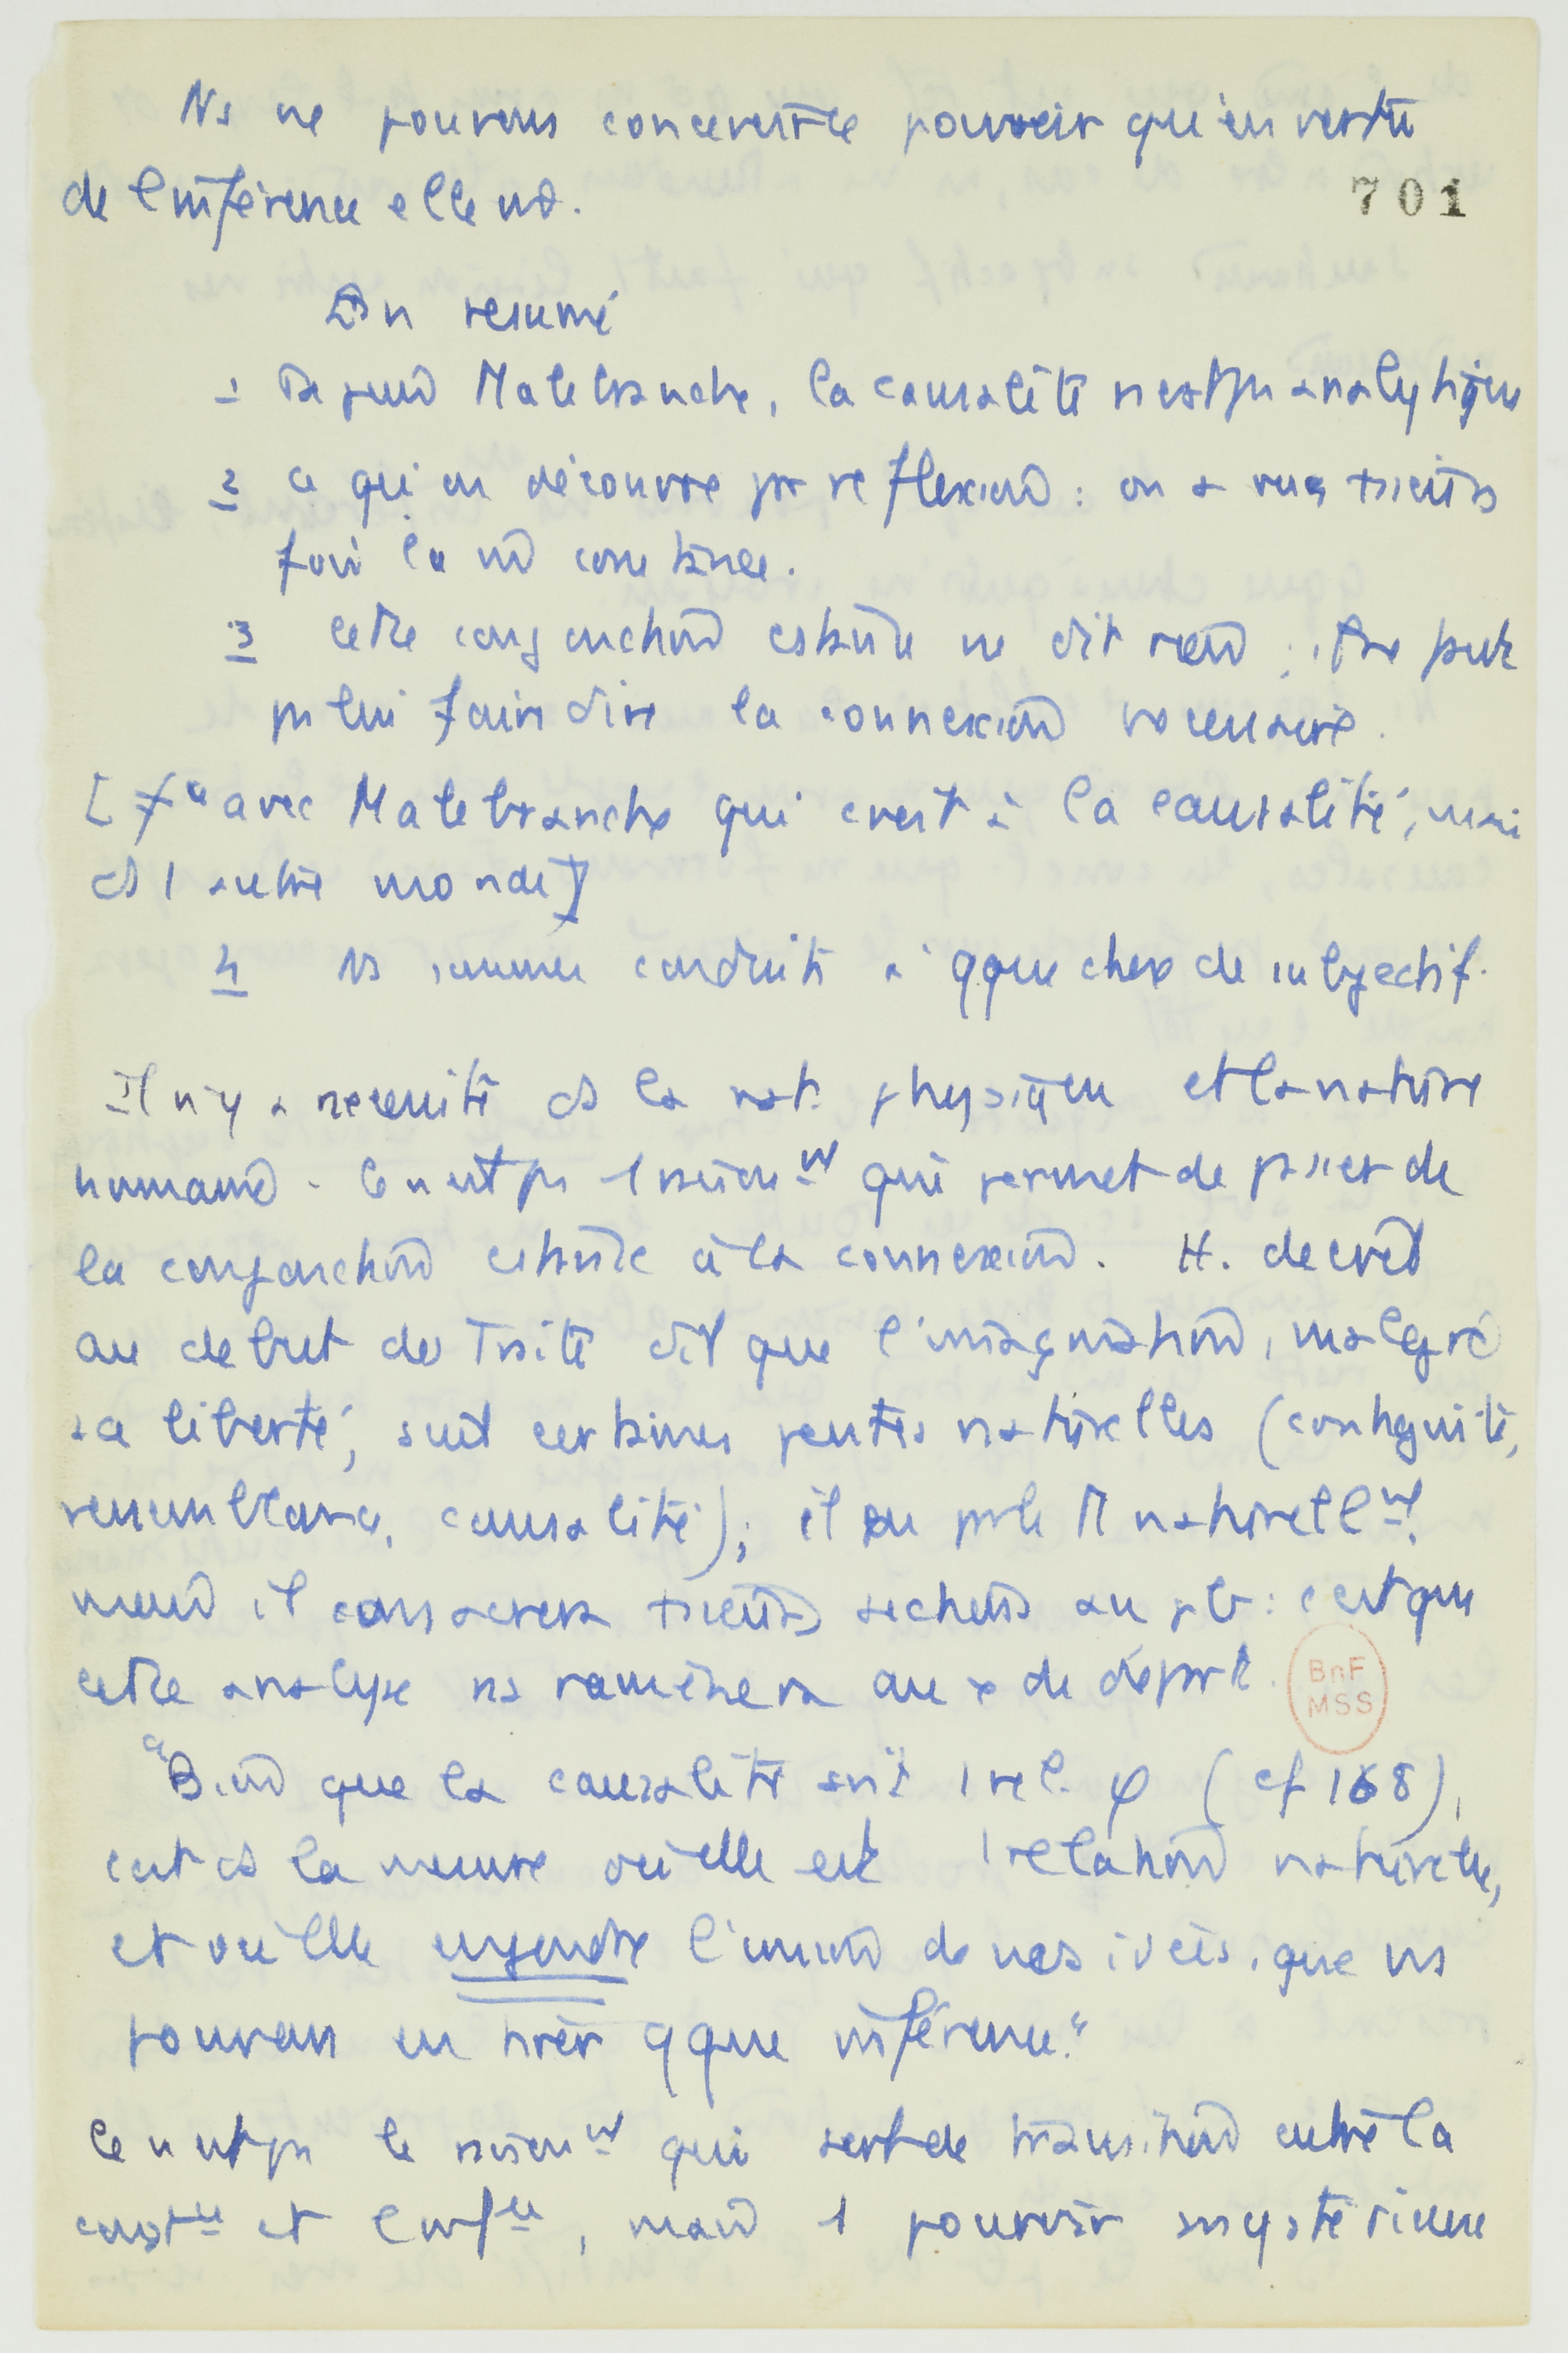 Ns ne pouvons concevoir ce pouvoir qu'en vertu
de l'inférence elle md.
701
En résumé
1 Depuis Malebranche, la causalité n'est pas analytique
2 ce qu'on découvre par réflexion : on a vu plusieurs
fois la md constance.
3 cette conjonction cstante ne dit rien ; on ne peut
pas lui faire dire la connexion nécessaire.
[≠ce avec Malebranche qui croit à la causalité, mais
ds 1 autre monde]
4 ns sommes conduits à qque chose de subjectif.
Il n'y a nécessité ds la nat. physique et la nature
humaine. Ce n'est pas 1 raisonnt qui permet de passer de
la conjonction cstante à la connexion. H. décrit
au début du Traité dit que l'imagination, malgré
sa liberté, suit certaines pentes naturelles (contiguïté,
ressemblance, causalité) ; il en parle naturellt.
mais il consacrera sections au pb : c'est que
cette analyse ns ramènera au x de départ.
BnF
MSS
"Bien que la causalité soit 1 rel. φ (cf 168),
c'est ds la mesure où elle est 1 relation naturelle,
et où elle engendre l'union de nos idées, que ns
pouvons en tirer qque inférence."
Ce n'est pas le raisonnt qui sert de transition entre la
cstce et l'infce, mais 1 pouvoir mystérieux